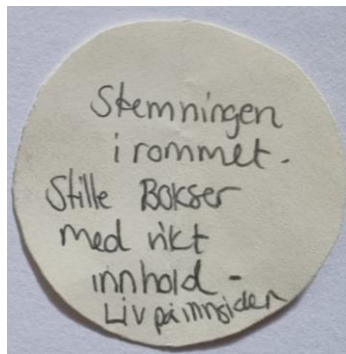 Stemningen
i rommet.
Stille Bokser
med rikt
innhold -
Liv på innsiden